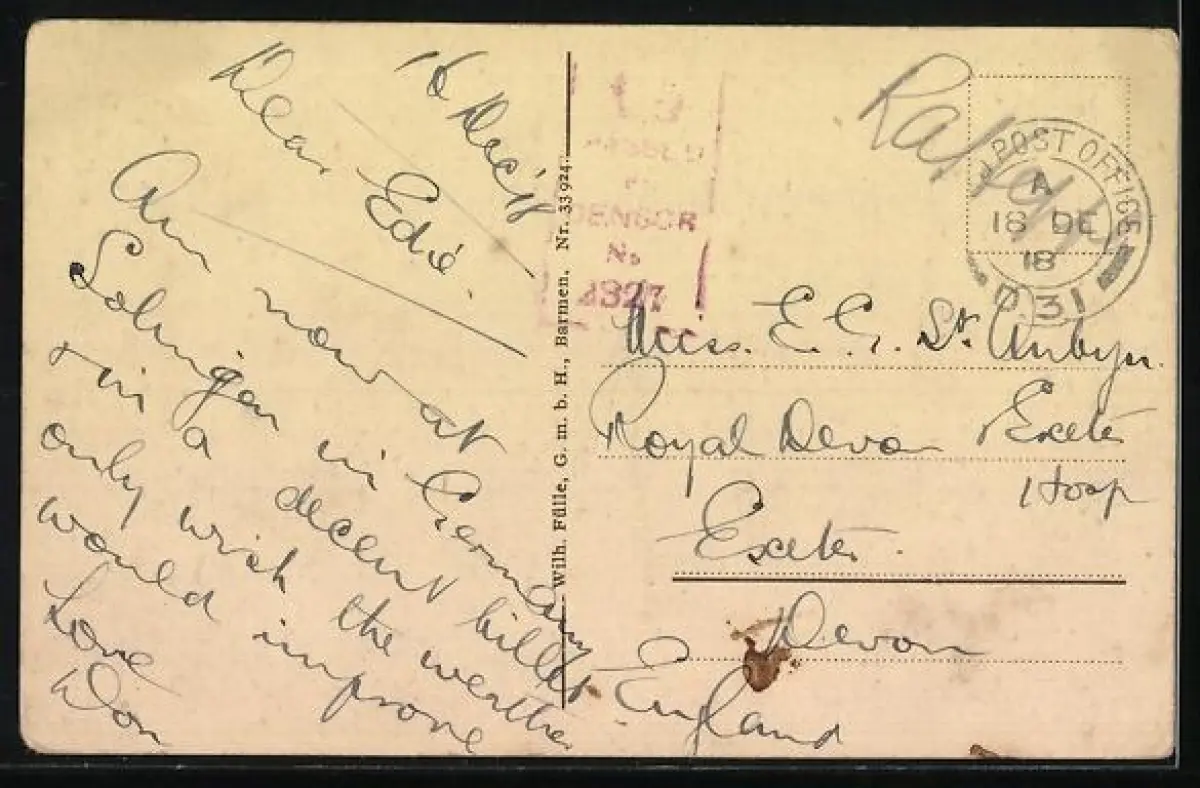 16 Dec 18
Dear Edie.
Am now at
Solingen in Germany
+ in a decent billet
only wish the weather
would improve
Love
Don
Wilh. Fülle, G. m. b. H., Barmen. Nr. 33 924.
PASSED
CENSOR
No
4327
POST OFFICE
A
18 DE
18
D 31
Miss. E. G. St. Aubyn.
Royal Devon Exeter
Hosp
Exeter.
Devon
England